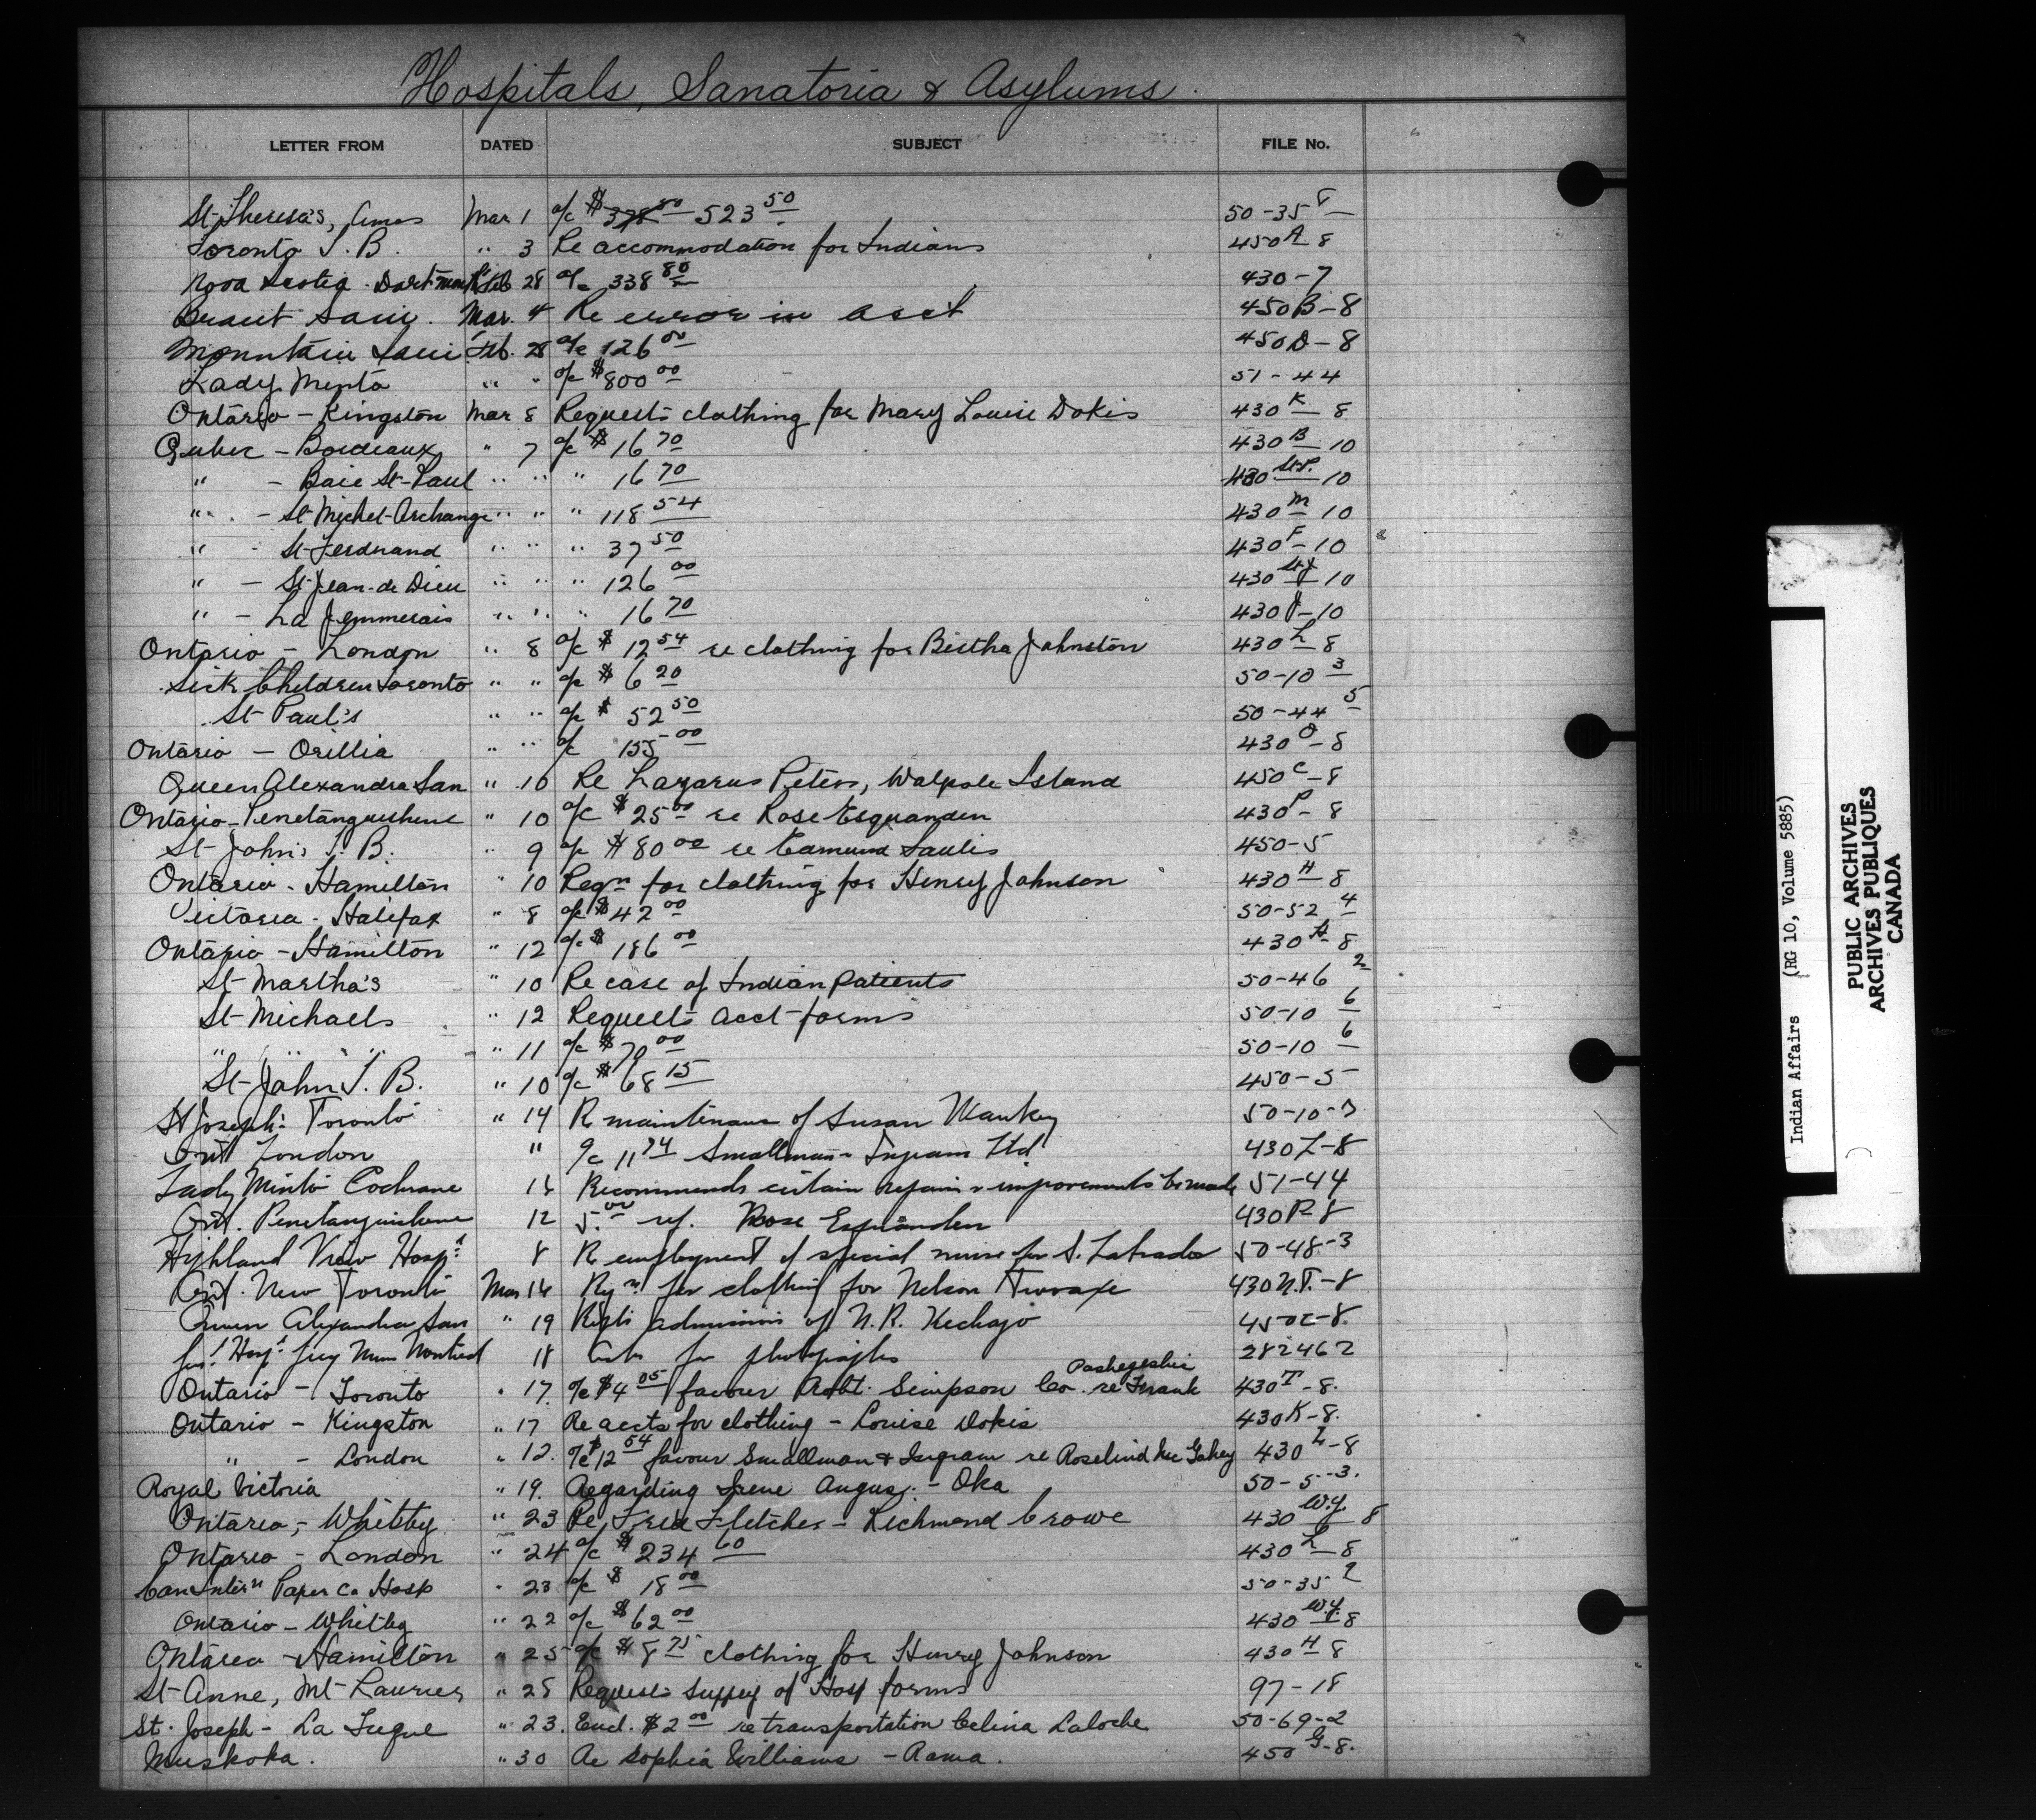 Hospitals, Sanatoria & Asylums.
LETTER FROM DATED SUBJECT FILE No.
St-Theresa's, Amos Mar. 1 a/c $ 523 50 50-35 8
Toronto T. B. " 3 Re accommodation for Indians 450 A 8
Nova Scotia - Dartmouth Feb 28 a/c 338 80 430-7
Brant Sani. Mar. 4 Re error in acct 450B-8
Mountain Sani. Feb. 28 a/c 126 00 450D-8
Lady Minto " " a/c $800 00 51-44
Ontario - Kingston Mar 8 Requests clothing for Mary Louise Dokis 430 K 8
Quebec - Bordeaux " 7 a/c $ 16 70 430 B 10
" - Baie St-Paul " " " 16 70 430 St-P. 10
" - St-Michel-Archange " " " 118 54 430 M 10
" - St-Ferdnand " " " 37 50 430 F-10
" - St-Jean-de Dieu " " " 126 00 430 St J 10
" - La Jemmerais " " " 16 70 430 J-10
Ontario - London " 8 a/c $ 12 54 re clothing for Bertha Johnston 430 L 8
Sick Children Toronto " " a/c $ 6 20 50-10 3
St-Paul's " " a/c $ 52 50 50-44 5
Ontario - Orillia " " a/c 155 00 430 O-8
Queen Alexandra San " 10 Re Lazarus Peters, Walpole Island 450 C-8
Ontario - Penetanguishene " 10 a/c $25 00 re Rose Esquanden 430 P- 8
St-John's T. B. " 9 a/c $80 00 re Edmund Saulis 450-5
Ontario - Hamilton " 10 Reqn for clothing for Henry Johnson 430 H-8
Victoria - Halifax " 8 a/c $42 00 50-52 4
Ontario - Hamilton " 12 a/c $ 186 00 430 H-8
St-Martha's " 10 Re case of Indian patients 50-46 2
St-Michaels " 12 Requests acct-forms 50-10 6
" " " " " 11 a/c $70 00 50-10 6
St-John T. B. " 10 a/c $ 68 15 450-5
St Joseph's Toronto " 14 R maintenance of Susan 50-10-3
Ont London " a/c 11 74 Smallman & Ingram Ltd 430L-8
Lady Minto Cochrane Recommends certain repairs & improvements be made 51-44
Ont. Penetanguishene 12 5.00 ref. Rose Esquanden 430P-8
Highland View Hospt 8 R employment of special nurse for S. Labrador 50-48-3
Ont. New Toronto Mar 16 Rqn for clothing for Nelson 430N.T.-8
Queen Alexandra San " 19 Rqsts admission of N. R. Kechago 450C-8.
Hospt Montreal 18 Asks for photographs 282462
Ontario - Toronto " 17. a/c $4 05 favour Robt. Simpson Co. re Frank Pashegeshic 430T-8.
Ontario - Kingston " 17 Re accts for clothing - Louise Dokis 430K-8.
" - London " 12. a/c $12 54 favour Smallman & Ingram re Roselind Mc Gahey 430 L-8
Royal Victoria " 19. Regarding Irene Angus. - Oka 50-5-3.
Ontario - Whitby " 23 Re Fred Fletcher - Richmond Crowe 430 W.y. 8
Ontario - London " 24 a/c $ 234 60 430 L 8
Can Intern Paper Co Hosp " 23 a/c $ 18 00 50-35 2
Ontario - Whitby " 22 a/c $62 00 430 W.y. 8
Ontario - Hamilton " 25 a/c $8 75 clothing for Henry Johnson 430 H 8
St-Anne, Mt-Laurier " 28 Requests supply of Hosp forms 97-18
St. Joseph - La Tuque " 23. Encl. $2 00 re transportation Celina Laloche 50-69-2
Muskoka. " 30 Re Sophia Williams - Rama. 450 G-8.
Indian Affairs (RG 10, Volume 5885)
PUBLIC ARCHIVES
ARCHIVES PUBLIQUES
CANADA